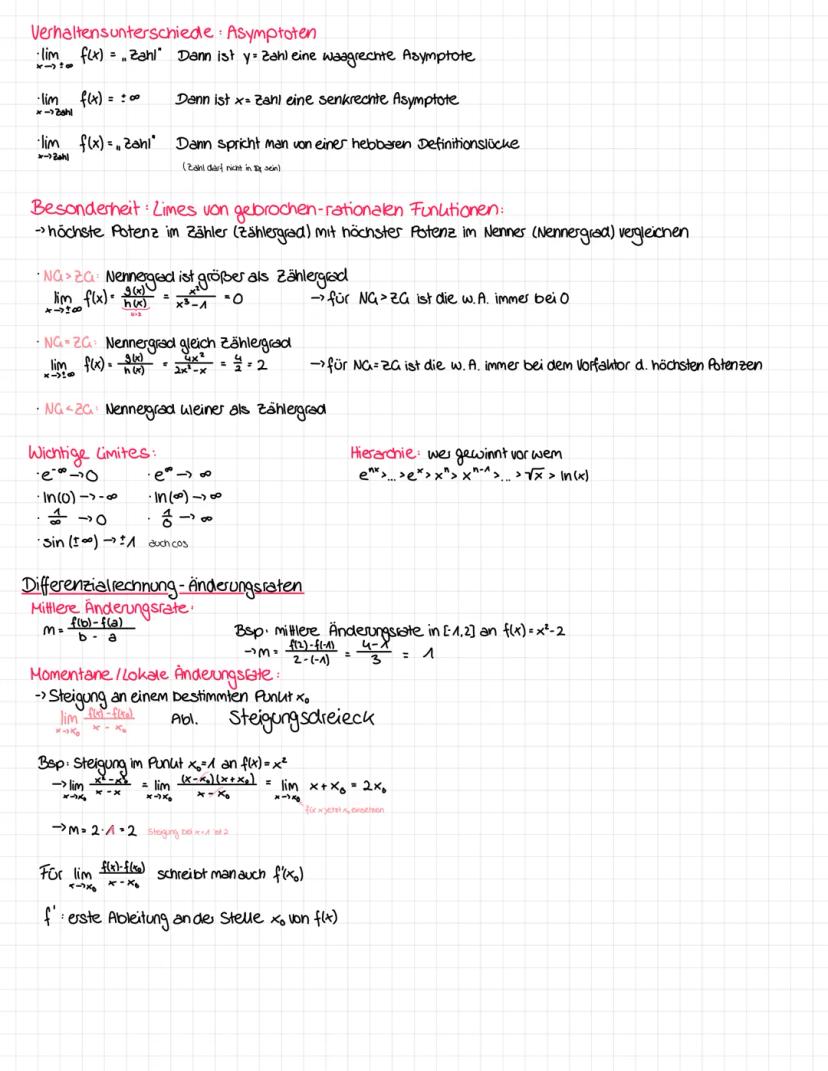 Verhaltensunterschiede : Asymptoten
· lim x→±∞ f(x) = „Zahl" Dann ist y = Zahl eine waagrechte Asymptote
· lim x→Zahl f(x) = ±∞ Dann ist x = Zahl eine senkrechte Asymptote
· lim x→Zahl f(x) = „Zahl" Dann spricht man von einer hebbaren Definitionslücke
(Zahl darf nicht in D sein)
Besonderheit : Limes von gebrochen-rationalen Funktionen:
→ höchste Potenz im Zähler (Zählergrad) mit höchster Potenz im Nenner (Nennergrad) vergleichen
· NG > ZG: Nennergrad ist größer als Zählergrad
lim x→±∞ f(x) = g(x)/h(x) = x²/(x³-1) = 0 → für NG > ZG ist die w. A. immer bei 0
· NG = ZG: Nennergrad gleich Zählergrad
lim x→±∞ f(x) = g(x)/h(x) = 4x²/(2x²-x) = 4/2 = 2 → für NG = ZG ist die w. A. immer bei dem Vorfaktor d. höchsten Potenzen
· NG < ZG: Nennergrad kleiner als Zählergrad
Wichtige Limites: Hierarchie: wer gewinnt vor wem
· e^-∞ → 0 · e^∞ → ∞ e^nx > ... > e^x > x^n > x^n-1 > ... > √x > ln(x)
· ln(0) → -∞ · ln(∞) → ∞
· 1/∞ → 0 · 1/0 → ∞
· sin (±∞) → ±1 auch cos
Differenzialrechnung - Änderungsraten
Mittlere Änderungsrate:
m = (f(b) - f(a))/(b - a) Bsp: mittlere Änderungsrate in [-1,2] an f(x) = x² - 2
→ m = (f(2) - f(-1))/(2 - (-1)) = (4 - 1)/3 = 1
Momentane / Lokale Änderungsrate:
→ Steigung an einem bestimmten Punkt x₀
lim x→x₀ (f(x) - f(x₀))/(x - x₀) Abl. Steigungsdreieck
Bsp: Steigung im Punkt x₀ = 1 an f(x) = x²
→ lim x→x₀ (x² - x₀²)/(x - x) = lim x→x₀ (x - x₀)(x + x₀)/(x - x₀) = lim x→x₀ x + x₀ = 2x₀
für x jetzt x₀ einsetzen
→ m = 2 · 1 = 2 Steigung bei x = 1 ist 2
Für lim x→x₀ (f(x) - f(x₀))/(x - x₀) schreibt man auch f'(x₀)
f' : erste Ableitung an der Stelle x₀ von f(x)